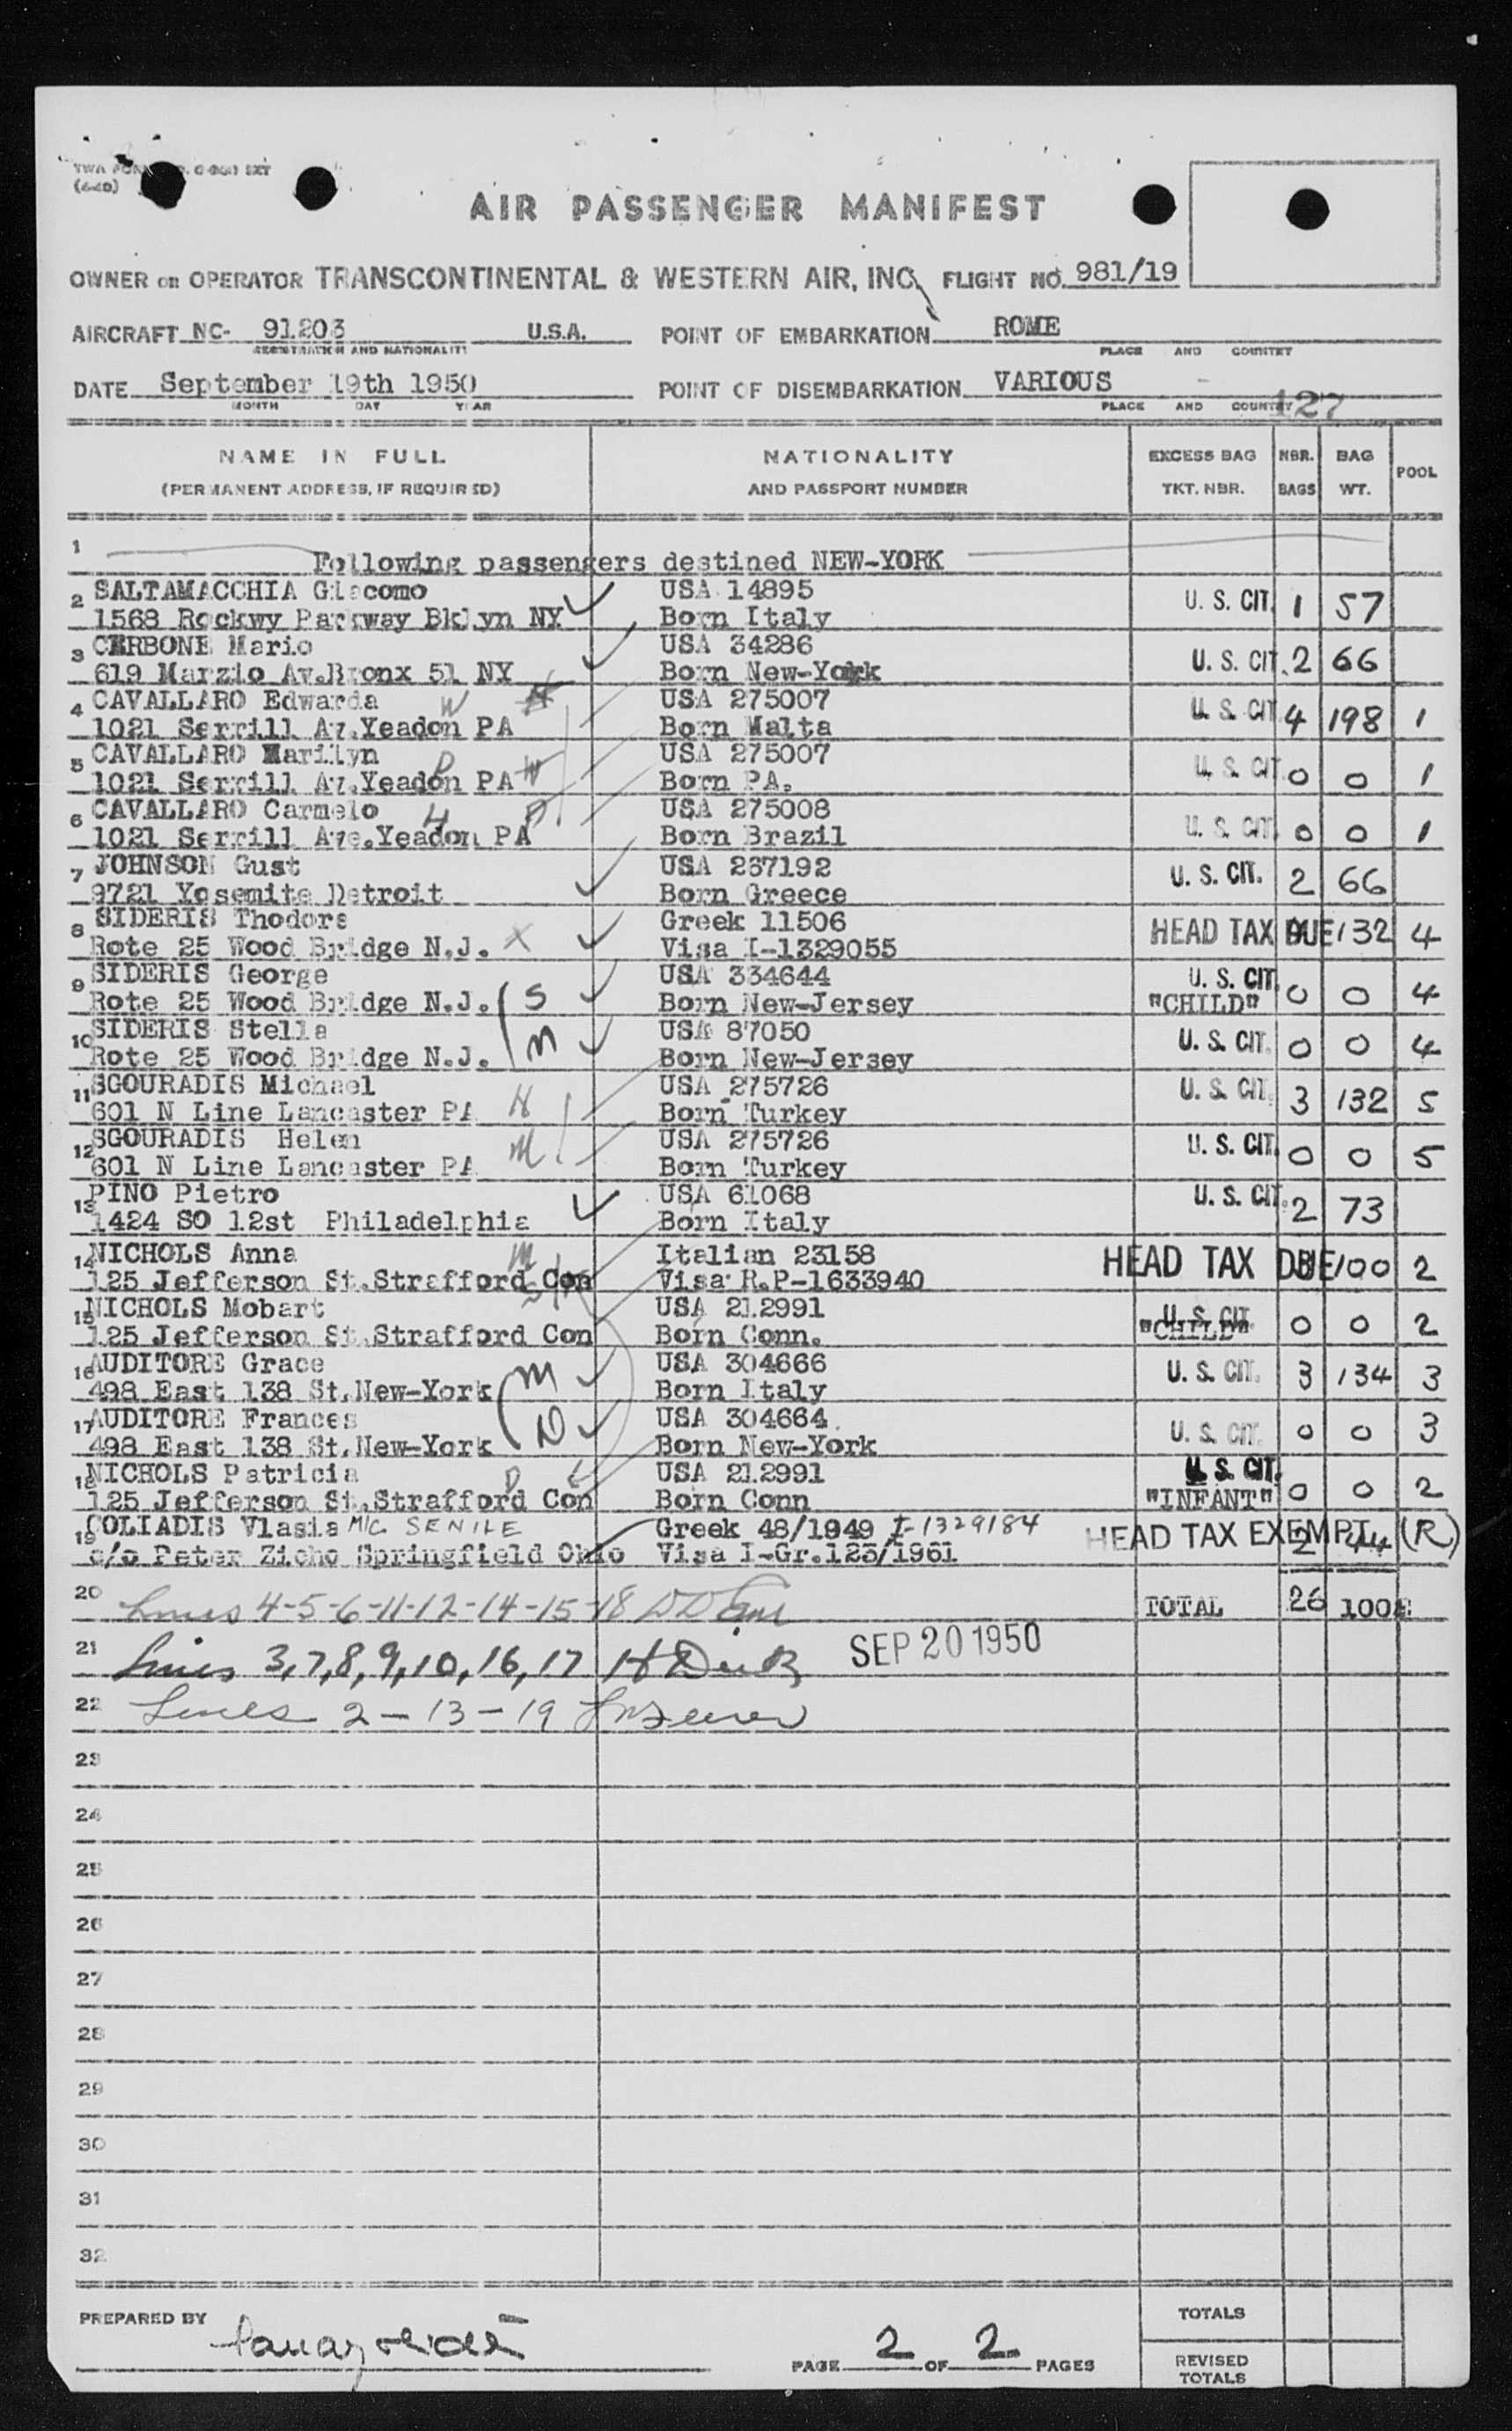 (4-40)
AIR PASSENGER MANIFEST
OWNER OR OPERATOR TRANSCONTINENTAL & WESTERN AIR, INC. FLIGHT NO. 981/19
AIRCRAFT NC- 91203 U.S.A. POINT OF EMBARKATION ROME
REGISTRATION AND NATIONALITY PLACE AND COUNTRY
DATE September 19th 1950 POINT OF DISEMBARKATION VARIOUS
MONTH DAY YEAR PLACE AND COUNTRY 127
NAME IN FULL NATIONALITY EXCESS BAG NBR. BAG POOL
(PERMANENT ADDRESS, IF REQUIRED) AND PASSPORT NUMBER TKT. NBR. BAGS WT.
1 Following passengers destined NEW-YORK
2 SALTAMACCHIA Giacomo USA 14895 U. S. CIT. 1 57
1568 Rockwy Parkway Bklyn NY Born Italy
3 CERBONE Mario USA 34286 U. S. CIT. 2 66
619 Marzio Av.Bronx 51 NY Born New-York
4 CAVALLARO Edwarda W H USA 275007 U. S. CIT 4 198 1
1021 Serrill Av.Yeadon PA Born Malta
5 CAVALLARO Marilyn D W USA 275007 U. S. CIT 0 0 1
1021 Serrill Av.Yeadon PA Born PA.
6 CAVALLARO Carmelo H D USA 275008 U. S. CIT. 0 0 1
1021 Serrill Ave.Yeadon PA Born Brazil
7 JOHNSON Gust USA 267192 U. S. CIT. 2 66
9721 Yosemite Detroit Born Greece
8 SIDERIS Thodore Greek 11506 HEAD TAX DUE 132 4
Rote 25 Wood Bridge N.J. X Visa I-1329055
9 SIDERIS George USA 334644 U. S. CIT.
Rote 25 Wood Bridge N.J. S Born New-Jersey "CHILD" 0 0 4
10 SIDERIS Stella USA 87050 U. S. CIT. 0 0 4
Rote 25 Wood Bridge N.J. M Born New-Jersey
11 SGOURADIS Michael USA 275726 U. S. CIT. 3 132 5
601 N Line Lancaster PA H Born Turkey
12 SGOURADIS Helen USA 275726 U. S. CIT. 0 0 5
601 N Line Lancaster PA M Born Turkey
13 PINO Pietro USA 61068 U. S. CIT. 2 73
1424 SO 12st Philadelphia Born Italy
14 NICHOLS Anna M Italian 23158 HEAD TAX DUE 100 2
125 Jefferson St.Strafford Con Visa R.P-1633940
15 NICHOLS Mobart USA 212991 U. S. CIT.
125 Jefferson St.Strafford Con Born Conn. "CHILD" 0 0 2
16 AUDITORE Grace USA 304666 U. S. CIT. 3 134 3
498 East 138 St.New-York M Born Italy
17 AUDITORE Frances USA 304664 U. S. CIT. 0 0 3
498 East 138 St.New-York D Born New-York
18 NICHOLS Patricia D USA 212991 U. S. CIT.
125 Jefferson St.Strafford Con Born Conn "INFANT" 0 0 2
19 COLIADIS Vlasia M/C SENILE Greek 48/1949 I-1329184 HEAD TAX EXEMPT 2 44 (R)
c/o Peter Zicho Springfield Ohio Visa I-Gr.123/1961
20 Lines 4-5-6-11-12-14-15-18 TOTAL 26 1002
21 Lines 3,7,8,9,10,16,17 SEP 20 1950
22 Lines 2-13-19
23
24
25
26
27
28
29
30
31
32
PREPARED BY TOTALS
PAGE 2 OF 2 PAGES REVISED TOTALS